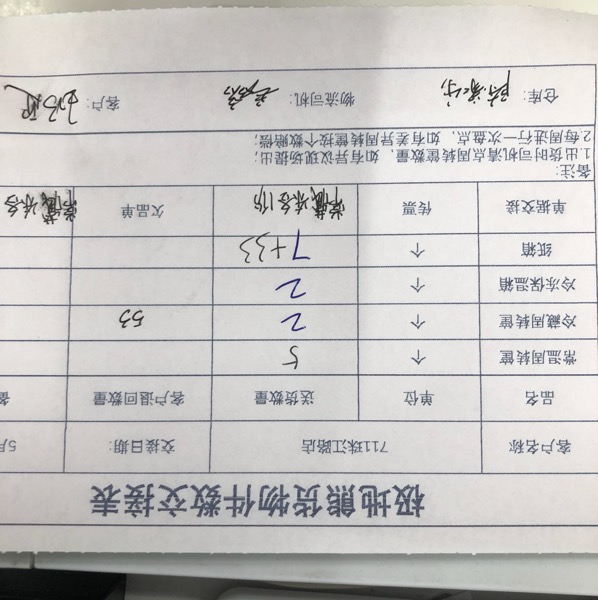 极地熊货物件数交接表
客户名称 711珠江路店 交接日期: 5月
品名 单位 送货数量 客户退回数量 备
常温周转筐 个 5
冷藏周转筐 个 2 53
冷冻保温箱 个 2
纸箱 个 7+33
单据交接 传票 常藏冻各1份 欠品单 常藏冻各
备注:
1.出货时司机清点周转筐数量，如有异议现场提出；
2.每周进行一次盘点，如有差异周转筐按个数赔偿；
仓库: 物流司机: 客户: